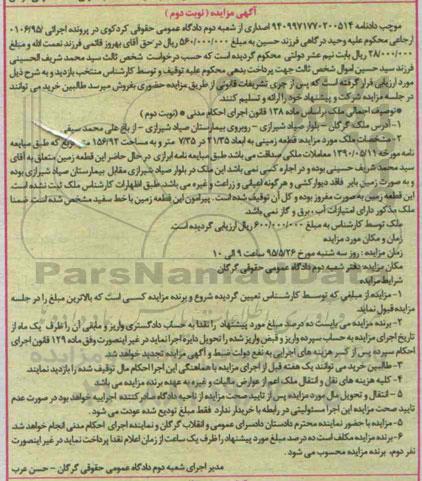 آگهی مزایده ( نوبت دوم )
موجب دادنامه ۹۴۰۹۹۷۱۷۷۰۲۰۰۵۱۴ اصداری از شعبه دوم دادگاه عمومی حقوقی کردکوی در پرونده اجرائی ۰۱۰۶۹۵/
ارجاعی محکوم علیه وحید درگاهی فرزند حسین به مبلغ ۵۶۰/۰۰۰/۰۰۰ ریال در حق آقای بهروز قائمی فرزند نعمت الله و مبلغ
۲۸/۰۰۰/۰۰۰ ریال بابت نیم عشر دولتی محکوم گردیده است که حسب درخواست شخص ثالث سید محمد شریف الحسینی
فرزند سید حسین اموال شخص ثالث جهت پرداخت بدهی محکوم علیه توقیف و توسط کارشناس منتخب بازدید و به شرح ذیل
مورد ارزیابی قرار گرفته است که پس از جری تشریفات قانونی از طریق مزایده حضوری بفروش میرسد طالبین خرید می توانند
در جلسه مزایده شرکت و پیشنهاد خود را ارائه و تسلیم کنند.
*توصیف اجمالی ملک براساس ماده ۱۳۸ قانون اجرای احکام مدنی « (نوبت دوم)
۱- آدرس ملک: گرگان - بلوار صیاد شیرازی - روبروی بیمارستان صیاد شیرازی - از باغ علی محمد سیفی
۲- مشخصات ملک مورد مزایده: قطعه زمینی به ابعاد ۲۱/۳۵ در ۷/۳۵ متر و به مساحت ۱۵۶/۹۲ متر مربع که طبق مبایعه
نامه مورخه ۱۳۹۰/۰۵/۱۱ معاملات ملکی صداقت می باشد طبق مبایعه نامه ابرازی در حال حاضر این قطعه زمین متعلق به آقای
سید محمد شریف حسینی بوده و در اجاره کسی نمی باشد این ملک در بلوار صیاد شیرازی مقابل بیمارستان صیاد شیرازی بوده
و به صورت زمین بایر فاقد دیوارکشی و هرگونه اعیانی و زراعت و غیره می باشد. طبق اظهارات کارشناس ملک ثبت نشده است.
این قطعه زمین به صورت مفروز بوده و کل آن توقیف شده است . پیرامون این قطعه زمین با خط سفید مشخص شده است. ضمنا
ملک مذکور دارای امتیازات آب ،برق و گاز نمی باشد.
ملک توسط کارشناس به مبلغ ۶۰۰/۰۰۰/۰۰۰ ریال ارزیابی گردیده است.
زمان و مکان مورد مزایده
زمان مزایده : روز سه شنبه مورخ ۹۵/۵/۲۶ ساعت ۹ الی ۱۰
مکان مزایده: دفتر شعبه دوم دادگاه عمومی حقوقی گرگان
شرایط مزایده
۱- مزایده از مبلغی که توسط کارشناس تعیین گردیده شروع و برنده مزایده کسی است که بالاترین مبلغ را در جلسه
مزایده قبول نماید.
۲- برنده مزایده می بایست ده درصد مبلغ مورد پیشنهاد را نقدا به حساب دادگستری واریز و مابقی آن را ظرف یک ماه از
تاریخ اجرای مزایده به حساب سپرده واریز و قبض واریز شده را تحویل دایره اجرا نماید در غیر اینصورت وفق ماده ۱۲۹ قانون اجرای
احکام سپرده پس از کسر هزینه های اجرایی به نفع دولت ضبط و آگهی مزایده تجدید خواهد شد.
۳- طالبین خرید می توانند یک هفته قبل از اجرای مزایده با هماهنگی این اجرا احکام مال توقیف شده را بازدید نمایند.
۴- کلیه هزینه های نقل و انتقال ملک اعم از عوارض مالیات و غیره به عهده برنده مزایده می باشد
۵- انتقال و تحویل مال مورد مزایده پس از تایید صحت مزایده از ناحیه دادگاه صادر کننده اجراییه خواهد بود در صورت عدم
تایید صحت مزایده این اجرا مسئولیتی در رابطه با خریدار ندارد فقط مبلغ تودیع شده عودت می شود.
۵- مزایده با حضور نماینده محترم دادستان دادسرای عمومی و انقلاب گرگان و نماینده اجرای احکام مدنی انجام خواهد شد.
۶- برنده مزایده مکلف است ده درصد مبلغ مورد پیشنهاد را ظرف یک ساعت از زمان اعلام نقدا پرداخت نماید در غیر اینصورت
نفر دوم، برنده مزایده محسوب می شود .
مدیر اجرای شعبه دوم دادگاه عمومی حقوقی گرگان - حسن عرب
ParsNamadData